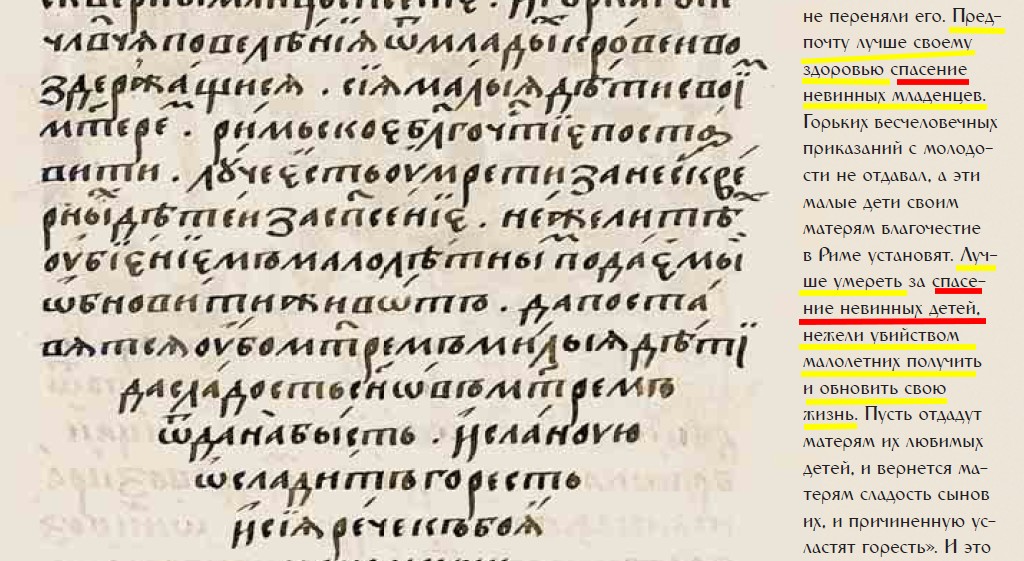 члв҃чѧ повелѣнїѧ ѿ млады кровей во
здержащисѧ . сїѧ малыѧ дѣти свої
мт҃ере . римьское бл҃гочт҃їе посто
вити . лꙋчеесть оумрети за нескве
рныⷯ дѣтей за сп҃сенїе . нежели тѣ
оубїенїемъ малолѣтны подаемыⷨ
ѡбновити животъ . да поста
вѧтсѧ оубо мт҃ремъ милыѧ дѣтї
да сладость сн҃ѡвъ мт҃ремъ
ѿдана бысть . и сланую
ѡсладитъ горесть
и сїѧ рече къ боѧ
не переняли его. Пред-
почту лучше своему
здоровью спасение
невинных младенцев.
Горьких бесчеловечных
приказаний с молодо-
сти не отдавал, а эти
малые дети своим
матерям благочестие
в Риме установят. Луч-
ше умереть за спасе-
ние невинных детей,
нежели убийством
малолетних получить
и обновить свою
жизнь. Пусть отдадут
матерям их любимых
детей, и вернется ма-
терям сладость сынов
их, и причиненную ус-
ластят горесть». И это